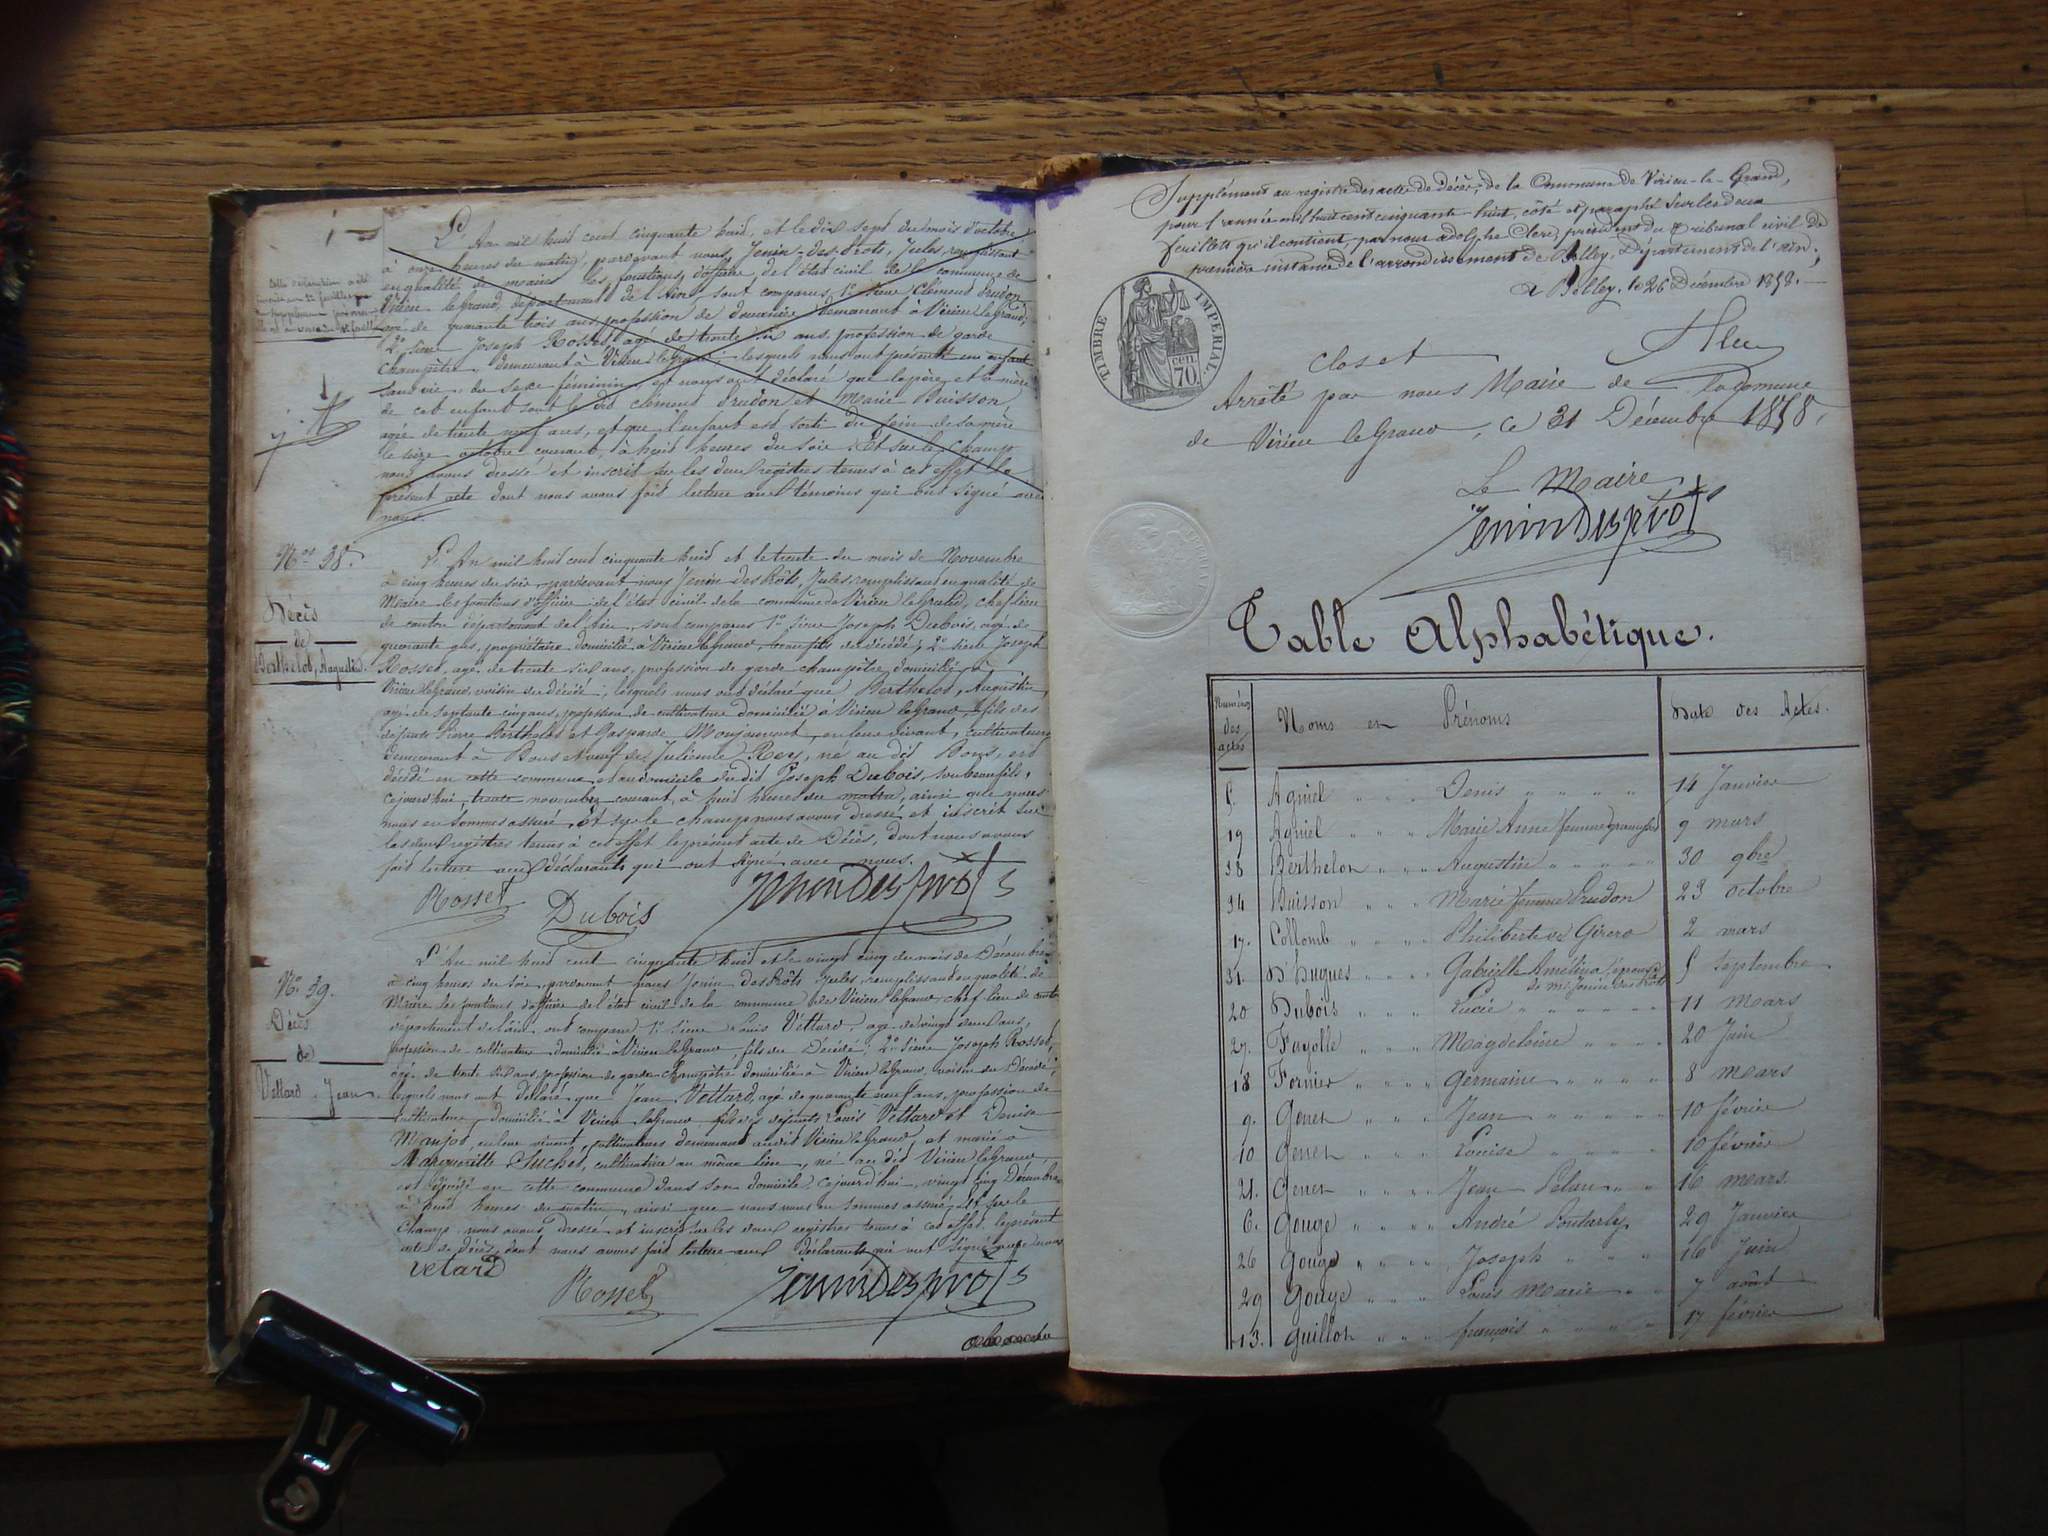 L'An mil huid cend cinquante huid, et le dix sept du mois d'octobre
à onze heures du matin, pardevant nous, Jenin-des-Prôts, Jules, remplissant
en qualité de maire les fonctions d'officier de l'état civil de la commune de
Virieu legrand, département de l'Ain, sont comparus, 1º sieur Clément Prudon
agé de quarante trois ans, profession de demeurant à Virieu le Grand,
2º sieur Joseph Rosset, agé de trente six ans, profession de garde
champêtre, demeurant à Virieu legrand, lesquels nous ont présenté un enfant
sans vie, du sexe féminin, et nous ont déclaré que le père et la mère
de cet enfant sont le dit Clément Prudon et Marie Buisson
agée de trente neuf ans, et que l'enfant est sorti du sein de sa mère
le seize octobre courant, à huid heures du soir. Et sur le champ
nous avons dressé et inscrit sur les deux registres tenus à cet effet le
présent acte dont nous avons fait lecture aux témoins qui ont signé avec
nous.
Nº 38.
Décès
de
Berthelot, Augustin.
L'An mil huid cend cinquante huid et le trente du mois de Novembre
à cinq heures du soir, pardevant nous Jenin des Prôts, Jules, remplissant en qualité de
Maire les fonctions d'officier de l'état civil de la commune de Virieu le Grand, chef lieu
de canton département de l'Ain, sont comparus 1º sieur Joseph Dubois, agé de
quarante ans, propriétaire domicilié à Virieu legrand, beau fils du décédé; 2º sieur Joseph
Rosset, agé de trente six ans, profession de garde champêtre, domicilié à
Virieu legrand, voisin du décédé; lesquels nous ont déclaré que Berthelot, Augustin,
agé de septante cinq ans, profession de cultivateur domicilié à Virieu legrand, fils des
défunts Pierre Berthelot et Gasparde Monjournout, en leur vivant, cultivateurs
demeurant à Bons et veuf de Julienne Rey, né au dit Bons, est
décédé en cette commune, et au domicile du dit Joseph Dubois, son beau fils,
cejourd'hui trente novembre courant, à huid heures du matin, ainsi que nous
nous en sommes assuré, et sur le champ nous avons dressé et inscrit sur
les deux registres tenus à cet effet le présent acte de Décès, dont nous avons
fait lecture aux déclarants qui ont signé avec nous.
Rosset Dubois Jenin Des prots
Nº 39.
Décès
de
Vettard, Jean
L'An mil huid cent cinquante huid et le vingt cinq du mois de Décembre
à cinq heures du soir, pardevant nous Jenin des Prôts Jules, remplissant en qualité de
Maire les fonctions d'officier de l'état civil de la commune de Virieu legrand chef lieu de canton
département de l'Ain, ont comparu 1º sieur Louis Vettard, agé de vingt deux ans,
profession de cultivateur domicilié à Virieu legrand, fils du Décédé; 2º sieur Joseph Rosset,
agé de trente six ans, profession de garde champêtre domicilié à Virieu legrand, voisin du Décédé,
lesquels nous ont déclaré que Jean Vettard, agé de quarante neuf ans, profession de
cultivateur, domicilié à Virieu legrand fils des défunts Louis Vettard et Denise
Manjot, en leur vivant, cultivateurs demeurant audit Virieu legrand, et marié à
Marguérite Suchet, cultivatrice au même lieu, né au dit Virieu legrand,
est décédé en cette commune dans son domicile, cejourd'hui vingt cinq Décembre
à huid heures du matin, ainsi que nous nous en sommes assuré, et sur le
champ nous avons dressé et inscrit sur les deux registres tenus à cet effet, le présent
acte de Décès, dont nous avons fait lecture aux déclarants qui ont signé avec nous
vetard Rosset Jenin Des prots
Supplément au registre des actes de décès, de la Commune de Virieu-le-Grand,
pour l'année mil huit cent cinquante-huit, côté et paraphé sur les deux
feuillets qu'il contient, par nous adolphe Clerc, président du Tribunal civil de
première instance de l'arrondissement de Belley, Département de l'Ain;
à Belley, le 26 Décembre 1858.
TIMBRE IMPERIAL
cen. 70.
Clos et
Arrêté par nous Maire de la Commune
de Virieu le Grand, ce 31 Décembre 1858.
Le Maire
Jenin Des prots
Table Alphabétique.
Numéros des actes Noms en Prénoms Date des Actes.
5. Agniel " " " Denis " " " " 14 Janvier
19 Agniel " " " Marie Anne 9 mars
38 Berthelon " " " Augustin " " " " 30 9bre
34 Buisson " " " Marie femme Prudon 23 octobre
17. Collomb " " " Philiberte ve Girerd 2 mars
31. D'hugues " " " Gabrielle Amélina épouse de Mr Jenin des Prôts 5 Septembre
20 Dubois " " " Lucie " " " " 11 mars
27. Fayolle " " " Magdeleine " " " " 20 Juin
18 Fornier " " " Germaine " " " " 8 mars
9. Genet " " " Jean " " " " 10 février
10 Genet " " " Louise " " " " 10 février
21. Genet " " " Jean " " 16 mars
6. Gouge " " " André Pontarly 29 Janvier
26 Gouge " " " Joseph " " " " 16 Juin
29 Gouge " " " Louis Marie " " 7 août
13. Guillot " " " françois " " " " 17 février